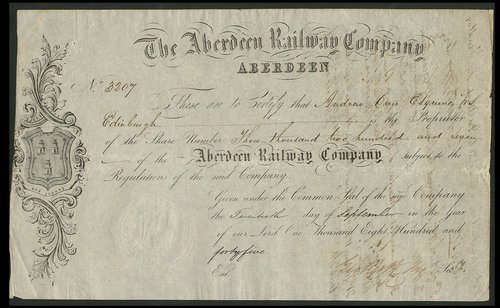 The Aberdeen Railway Company
ABERDEEN
No. 3207
These are to Certify that Andrew
Edinburgh is the Proprietor
of the Share Number Three thousand two hundred and seven
of the Aberdeen Railway Company subject to the
Regulations of the said Company
Given under the Common Seal of the said Company
the Twentieth day of September in the Year
of our Lord One Thousand Eight Hundred and
fortyfive
Entd.